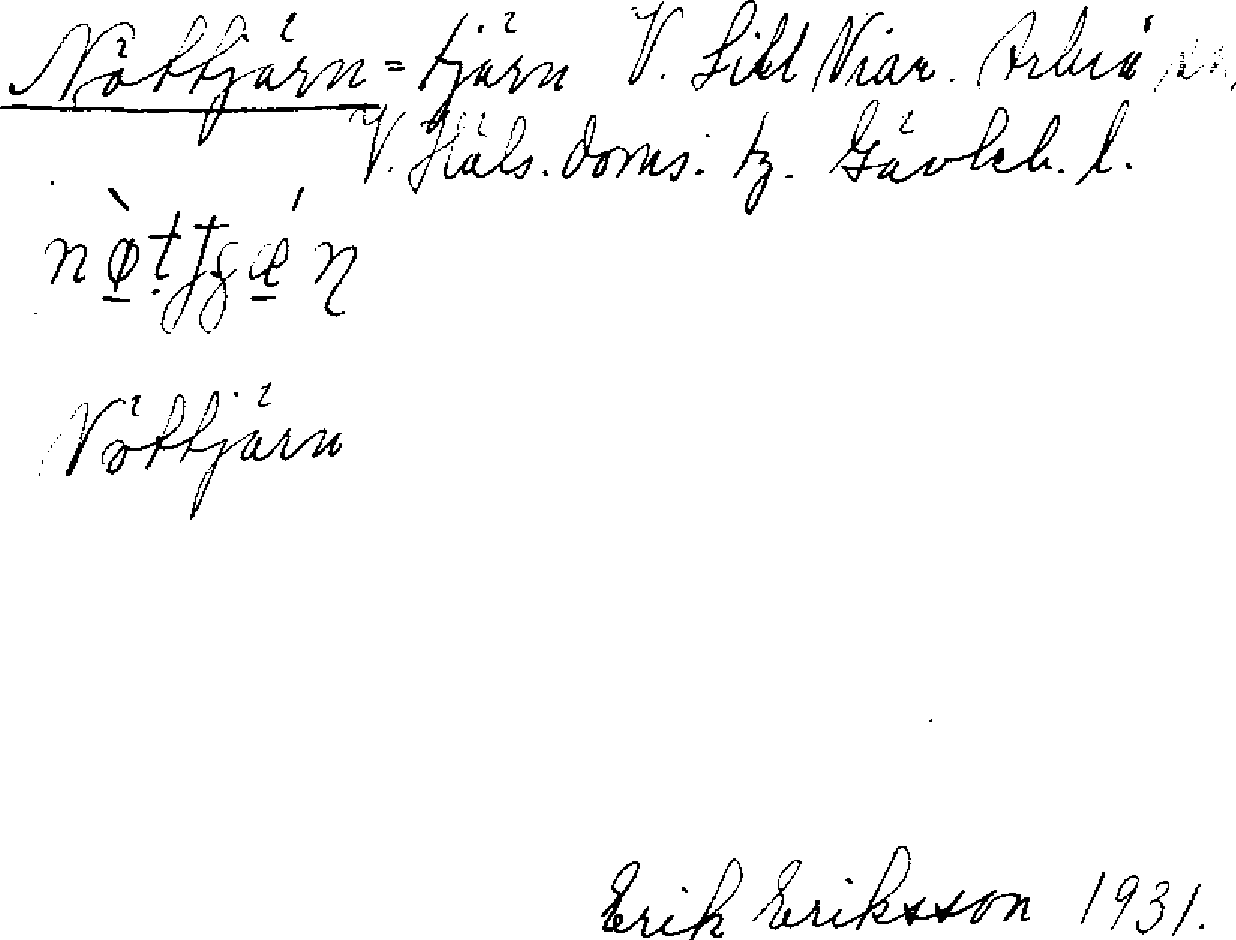 Nöttjärn = tjärn V. Sild Viar. Arbrå sn.
V. Häls. doms. tg. Gävleb. l.
Nöttjärn
Erik Eriksson 1931.